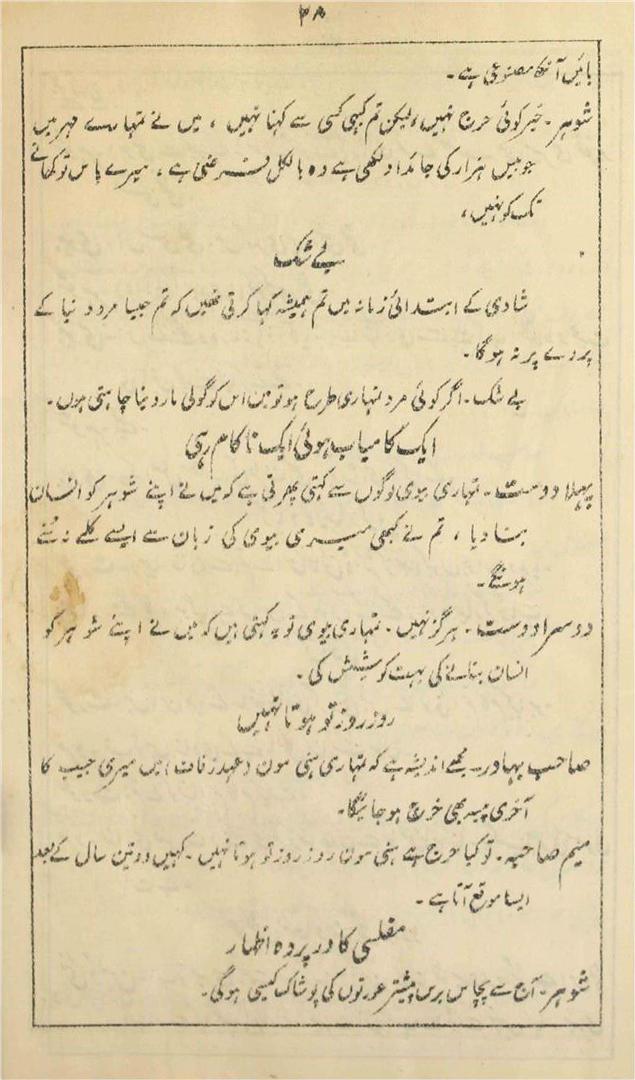 ۳۸
بائیں آنکھ مصنوعی ہے۔
شوہر۔ خیر کوئی حرج نہیں، لیکن تم کبھی کسی سے کہنا نہیں، میں نے تمہارے مہر میں
جو بیس ہزار کی جائداد لکھی ہے وہ بالکل فرضی ہے، میرے پاس تو کھانے
تک کو نہیں،
بے شک
شادی کے ابتدائی زمانہ میں تم ہمیشہ کہا کرتی تھیں کہ تم جیسا مرد دنیا کے
پردے پر نہ ہوگا۔
بے شک۔ اگر کوئی مرد تمہاری طرح ہو تو میں اس کو گولی مار دینا چاہتی ہوں۔
ایک کامیاب ہوئی ایک ناکام رہی
پہلا دوست۔ تمہاری بیوی لوگوں سے کہتی پھرتی ہے کہ میں نے اپنے شوہر کو انسان
بنا دیا، تم نے کبھی میری بیوی کی زبان سے ایسے کلمے نہ سنے
ہونگے۔
دوسرا دوست۔ ہرگز نہیں۔ تمہاری بیوی تو یہ کہتی ہیں کہ میں نے اپنے شوہر کو
انسان بنانے کی بہت کوشش کی۔
روز روز تو ہوتا نہیں
صاحب بہادر۔ مجھے اندیشہ ہے کہ تمہاری ہنی مون (عہد زفاف) میں میری جیب کا
آخری پیسہ بھی خرچ ہو جائیگا۔
میم صاحبہ۔ تو کیا حرج ہے ہنی مون روز روز تو ہوتا نہیں۔ کہیں دو تین سال کے بعد
ایسا موقع آتا ہے۔
مفلسی کا در پردہ اظہار
شوہر۔ آج سے پچاس برس پیشتر عورتوں کی پوشاک کیسی ہوگی۔